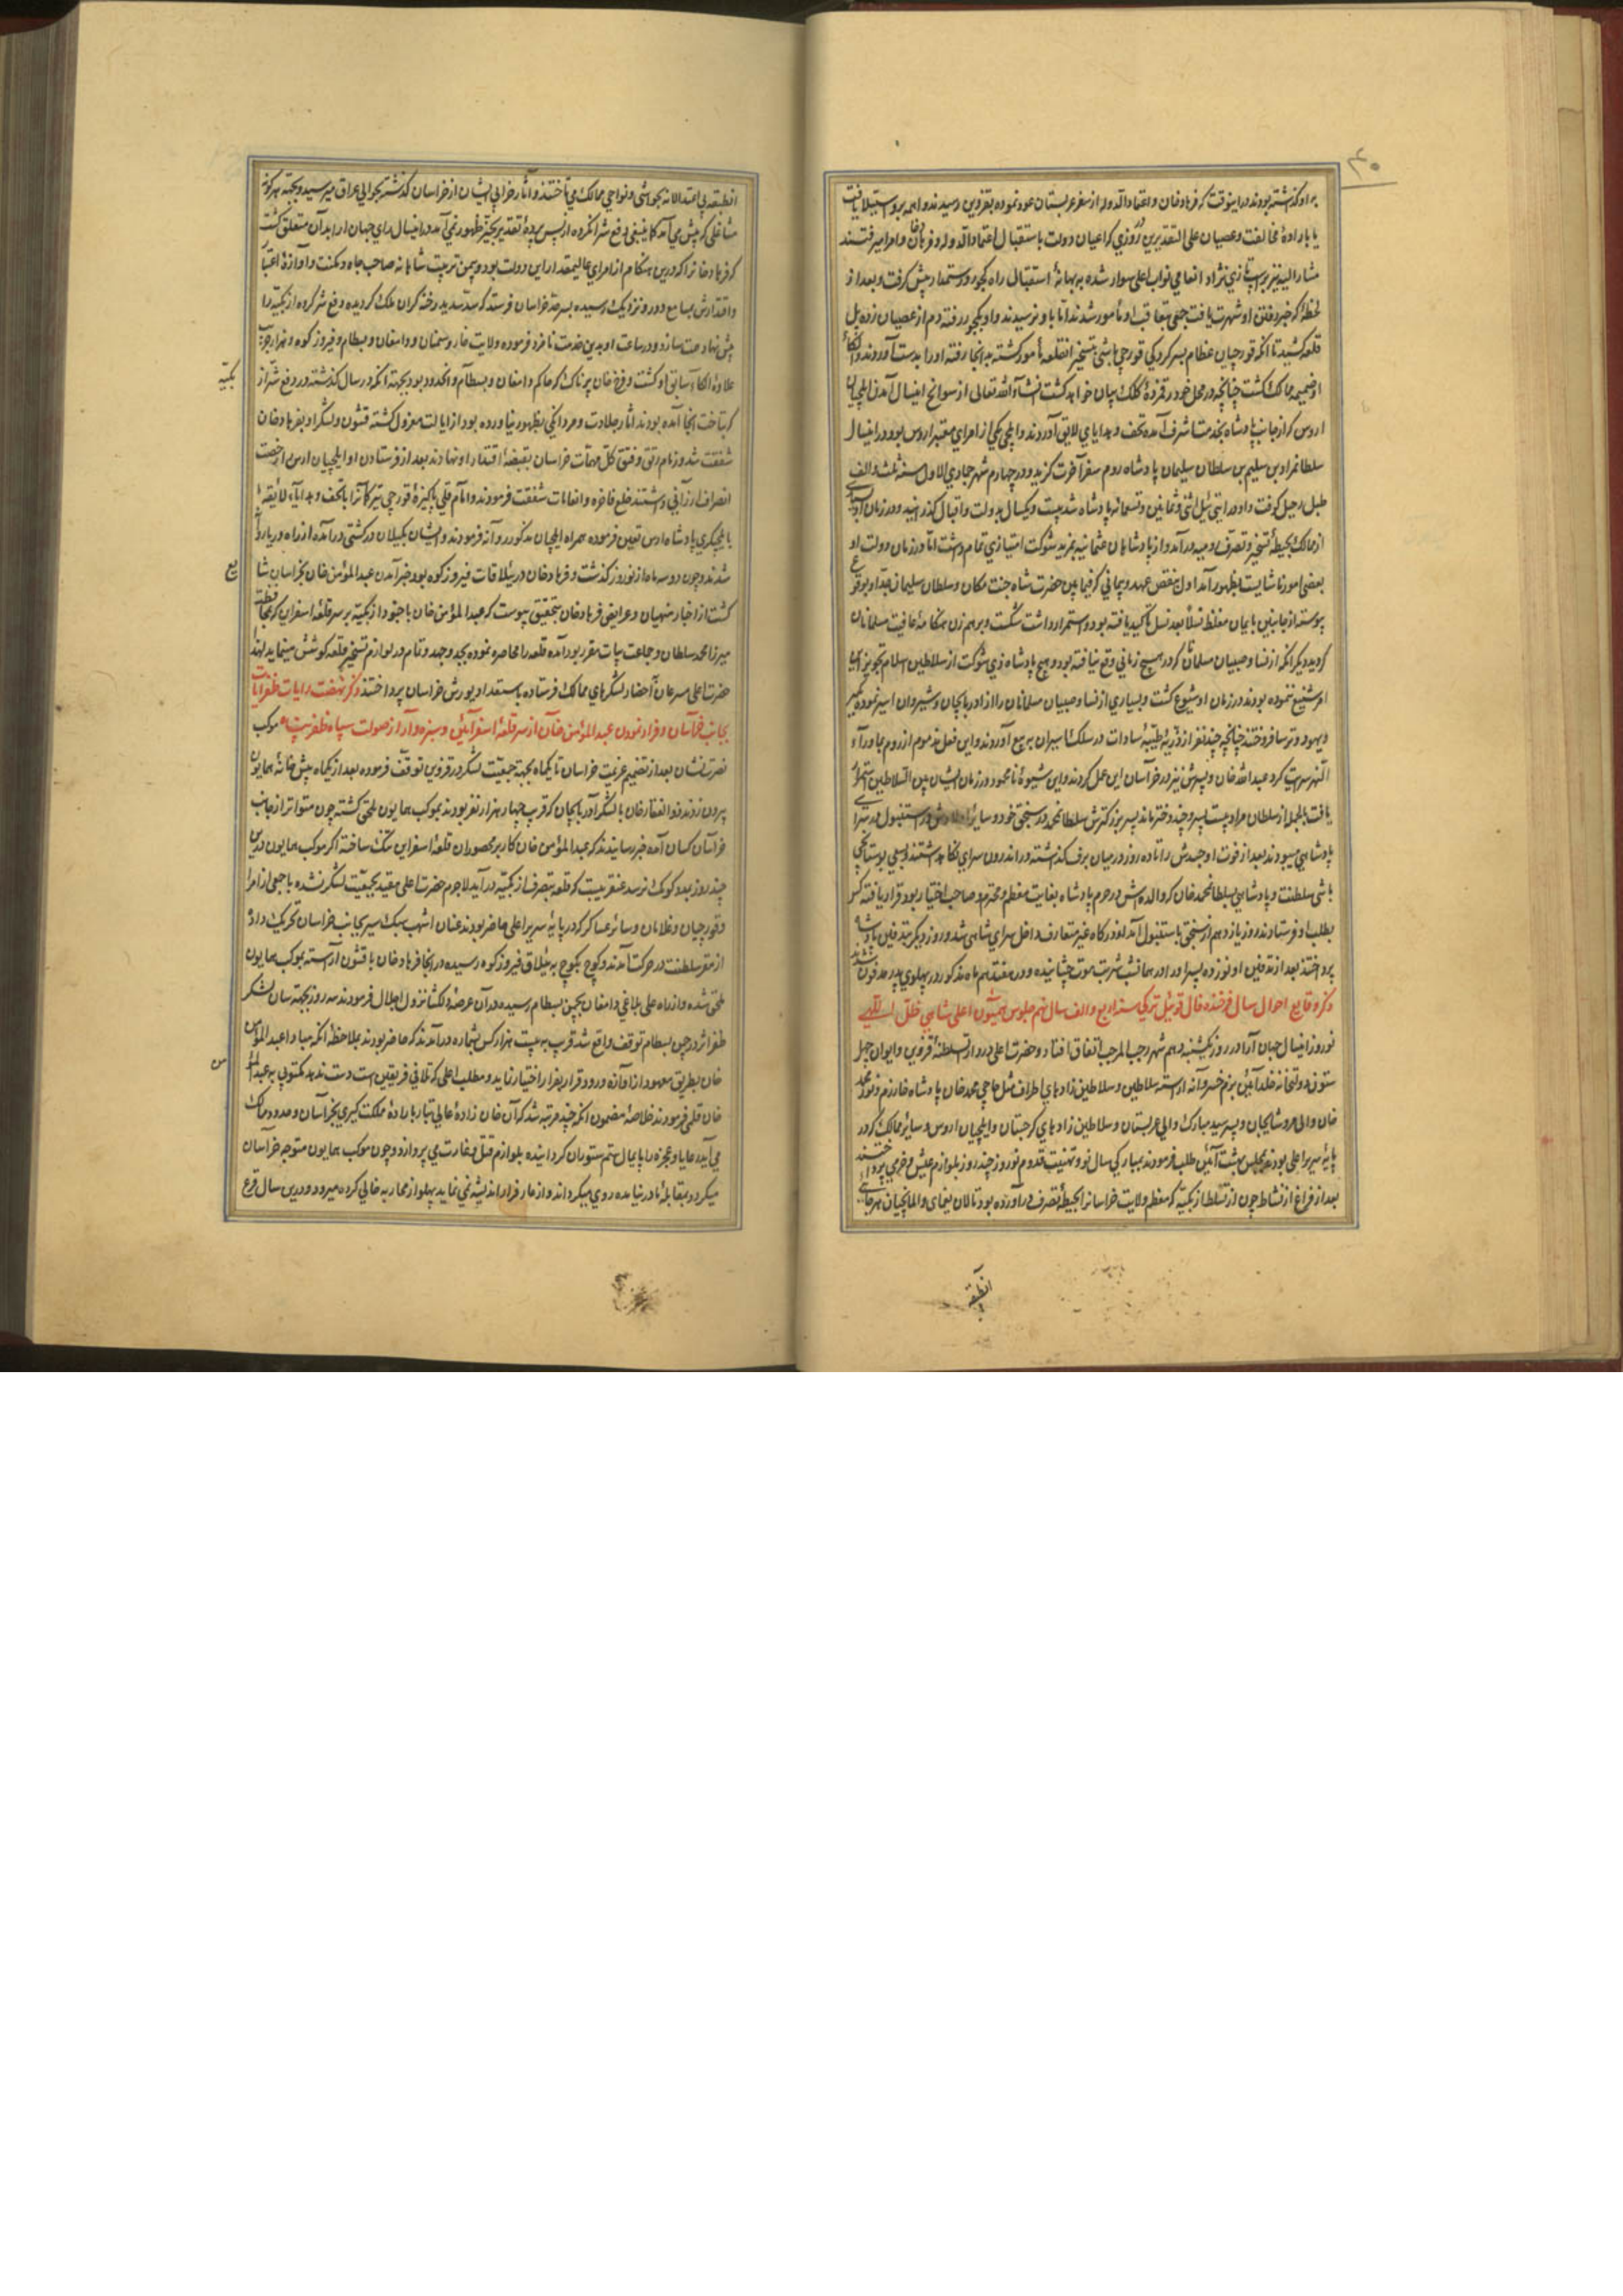 ۴۰
بر او گذشته بودند در اینوقت که فرهادخان و اعتماد الدوله از سفر عربستان عود نموده بقزوین رسیدند واهمه برو استیلا یافت
یا باراده مخالفت و عصیان علی التقدیرین روزی که اعیان دولت باستقبال اعتماد الدوله و فرهادخان و امرا میرفتند
مشار الیه نیز بر اسپ تازی نژاد انعامی نواب اعلی سوار شده به بهانهٔ استقبال راه کجور و رستمدار پیش گرفت و بعد از
لحظهٔ که خبر رفتن او شهرت یافت جمعی بتعاقب او مأمور شدند اما باو نرسیدند و او بکجور رفته دم از عصیان زده پل
قلعه کشید تا آنکه قورچیان عظام بسرکردگی قورچی باشی بتسخیر انقلعه مأمور گشته بدانجا رفته او را بدست آوردند و الکاء
او ضمیمه ممالک گشت چنانچه در محل خود رقمزدهٔ کلک بیان خواهد گشت انشاء الله تعالی از سوانح اینسال آمدن ایلچیان
اروس که از جانب پادشاه بخدمت اشرف آمده تحف و هدایای لایق آوردند و ایلچی یکی از امرای معتبر اروس بود و در اینسال
سلطانمراد بن سلیم بن سلطان سلیمان پادشاه روم سفر آخرت گزید و در چهارم شهر جمادی الاول سنه ثلث و الف
طبل رحیل کوفت و او در ایت ئیل اثنی و ثمانین و تسعمائه پادشاه شد بیست و یکسال بدولت و اقبال گذرانید و در زمان او بسیاری
از ممالک بحیطهٔ تسخیر و تصرف رومیه درآمد و از پادشاهان عثمانیه بمزید شوکت امتیازی تمام داشت اما در زمان دولت او
بعضی امور ناشایست بظهور آمد اول نقض عهد و پیمانی که فیمابین حضرت شاه جنت مکان و سلطان سلیمان جد او بوقوع
پیوسته از جانبین بایمان مغلظ نسلاً بعد نسل تأکید یافته بود و استمرار داشت شکست و برهم زن هنگامهٔ عافیت مسلمانان
گردید دیگر آنکه از نسا و صبیان مسلمانان که در هیچ زمانی وقع نیافته بود و هیچ پادشاه ذی شوکت از سلاطین اسلام تجویز این
امر شنیع ننموده بودند در زمان او شیوع گشت و بسیاری از نسا و صبیان مسلمانان را از اذربایجان و شیروان اسیر نموده بگبر
و یهود و ترسا فروختند چنانچه چند نفر از ذریهٔ طیبهٔ سادات در سلک اسیران به بیع آوردند و این فعل مذموم از روم بماوراء
النهر سرایت کرد عبدالله خان و پسرش نیز در خراسان این عمل کردند و این شیوهٔ نامحمود در زمان ایشان بین السلاطین استمرار
یافت بالجمله از سلطان مراد بیست پسر و چند دختر ماند پسر بزرگترش سلطانمحمد در سنجق خود و سایر اولادش در استنبول در سرای
پادشاهی میبودند بعد از فوت او جسدش را تا ده روز در میان برف گذاشته در اندرون سرای نگاه داشتند و بسعی بوستانجی
باشی سلطنت و پادشاهی بسلطانمحمدخان که والده اش در حرم پادشاه بغایت معظم و محترم و صاحب اختیار بود قرار یافته کس
بطلب او فرستادند روز یازدهم از سنجق باستنبول آمد از درگاه غیر متعارف داخل سرای شاهی شد و روز دیگر بتدفین پادشاه
پرداختند بعد از تدفین او نوزده پسر او را در همانشب شربت موت چشانیده و در هفتدهم ماه مذکور در پهلوی پدر مدفون شدند
ذکر وقایع احوال سال فرخنده فال قوی ئیل ترکی سنه اربع و الف سال نهم جلوس همیون اعلی شاهی ظل اللهی
نوروز اینسال جهان آرا در روز یکشنبه دهم شهر رجب المرجب اتفاق افتاد و حضرت اعلی در دار السلطنه قزوین و ایوان چهل
ستون دولتخانه خلد آئین بزم خسروانه اراسته سلاطین و سلاطین زادهای اطراف مثل حاجی محمدخان پادشاه خوارزم و نور محمد
خان والی مرو شاهیجان و پسر سید مبارک والی عربستان و سلاطین زادهای گرجستان و ایلچیان اروس و سایر ممالک که در
پایهٔ سریر اعلی بودند بمجلس بهشت آئین طلب فرمودند بمبارکی سال نو و تهنیت قدوم نوروز چند روز بلوازم عیش و خرمی پرداختند
بعد از فراغ از نشاط چون از تسلط ازبکیه که معظم ولایت خراسانرا بحیطهٔ تصرف درآورده بود تالان یغمای و المانچیان هر جائی
انطبقه
انطبقه بی اعتدالانه بحواشی و نواحی ممالک می تاختند و آثار خرابی ایشان از خراسان گذشته بحوالی عراق میرسید و بجهته هرگونه
مشاغلی که پیش می آمد کما ینبغی دفع شر انکروه از پس پردهٔ تقدیر بحیّز ظهور نمی آمد در اینسال رای جهان ارا بدان متعلق گشت
که فرهادخانرا که درین هنگام از امرای عالیمقدار این دولت بود و بیمن تربیت شاهانه صاحب جاه و مکنت و آوازهٔ اعتبار
و اقتدارش بمسامع دور و نزدیک رسیده بسرحد خراسان فرستد که سد سدید رخنه گران ملک گردیده دفع شر گروه ازبکیه را
پیش نهاد همت سازد و در ساعت او بدین خدمت نامزد فرموده ولایت خار و سمنان و دامغان و بسطام و فیروزکوه و هزارجریب
علاوه الکاء سابق او گشت و فرخ خان پرناک که حاکم دامغان و بسطام و انحدود بود بجهته آنکه در سال گذشته در دفع شر از
بکیه
که بتاخت انجا آمده بودند اثار جلادت و مردانگی بظهور نیاورده بود از ایالت معزول گشته قشون و لشکر او بفرهادخان
شفقت شد و زمام رتق و فتق کل مهمات خراسان بقبضهٔ اقتدار او نهادند بعد از فرستادن او ایلچیان ارس را رخصت
انصراف ارزانی داشتند خلع فاخره و انعامات شفقت فرمودند و امام قلی پاکیزهٔ قورچی ترکمانرا با تحف و هدایاء لایقه
بایلچیگری پادشاه ارس تعیین فرموده همراه ایلچیان مذکور روانه فرمودند و ایشان بگیلان در کشتی درآمده از راه دریا روانه
شدند و چون دو سه ماه از نوروز گذشت و فرهادخان در ییلاقات فیروزکوه بود خبر آمدن عبدالمؤمن خان بخراسان شا
یع
گشت از اخبار منهیان و عرایض فرهادخان بتحقیق پیوست که عبدالمؤمن خان با جنود ازبکیه بر سر قلعهٔ اسفراین که بمحافظت
میرزا محمد سلطان و جماعت بیات مقرر بود امده قلعه را محاصره نموده بجد و جهد تمام در لوازم تسخیر قلعه کوشش مینماید لهذا
حضرت اعلی مسرعان باحضار لشکرهای ممالک فرستاده باستعداد یورش خراسان پرداختند ذکر نهضت رایات ظفر ایات
بجانب خراسان و فرار نمودن عبدالمؤمن خان از سر قلعهٔ اسفرائین و سبزه وار از صولت سپاه ظفر پناه موکب
نصرت نشان بعد از تصمیم عزیمت خراسان تا یکماه بجهته جمعیت لشکر در قزوین توقف فرموده بعد از یکماه پیش خانهٔ همایون
بیرون زدند ذوالفقارخان با لشکر آذربایجان که قریب چهار هزار نفر بودند بموکب همایون ملحق گشته چون متواتر از جانب
خراسان کسان آمده خبر رسانیدند که عبدالمؤمن خان کار بر محصوران قلعهٔ اسفراین تنگ ساخته اگر موکب همایون درین
چند روز بمدد کومک نرسد عنقریبست که قلعه بتصرف ازبکیه درآید لاجرم حضرت اعلی مقید بجمعیت لشکر نشده با جمعی از امرا
و قورچیان و غلامان و سائر عساکر که در پایهٔ سریر اعلی حاضر بودند عنان اشهب سبک سیر بجانب خراسان تحریک داده
از مقر سلطنت در حرکت آمدند و کوچ بکوچ به ییلاق فیروزکوه رسیده در انجا فرهادخان با قشون آراسته بموکب همایون
ملحق شده و از راه علی بلاغی دامغان بچمن بسطام رسیده در آن عرصهٔ دلگشا نزول اجلال فرمودند سه روز بجهته سان لشکر
ظفر اثر در چمن بسطام توقف واقع شد قریب به بیست هزار کس بشماره درآمدند که حاضر بودند بملاحظهٔ انکه مبادا عبدالمؤمن
خان بطریق معهود از اوازه ورود قرار بفرار اختیار نماید و مطلب اعلی که تلاقی فریقین است دست ندهد مکتوبی به عبدالمؤ
من
خان قلمی فرمودند خلاصهٔ مضمون انکه چند مرتبه شد که آن خان زادهٔ عالی تبار بارادهٔ مملکت گیری بخراسان و حدود ممالک
می آید رعایا و عجزه را پایمال ستم ستوران گردانیده بلوازم قتل و غارت می پردازد و چون موکب همایون متوجه خراسان
میگردد بمقابله نا در نیامده روی میگرداند و از عار فرار اندیشه نمی نماید پهلو از محاربه خالی کرده میرود درین سال قرع